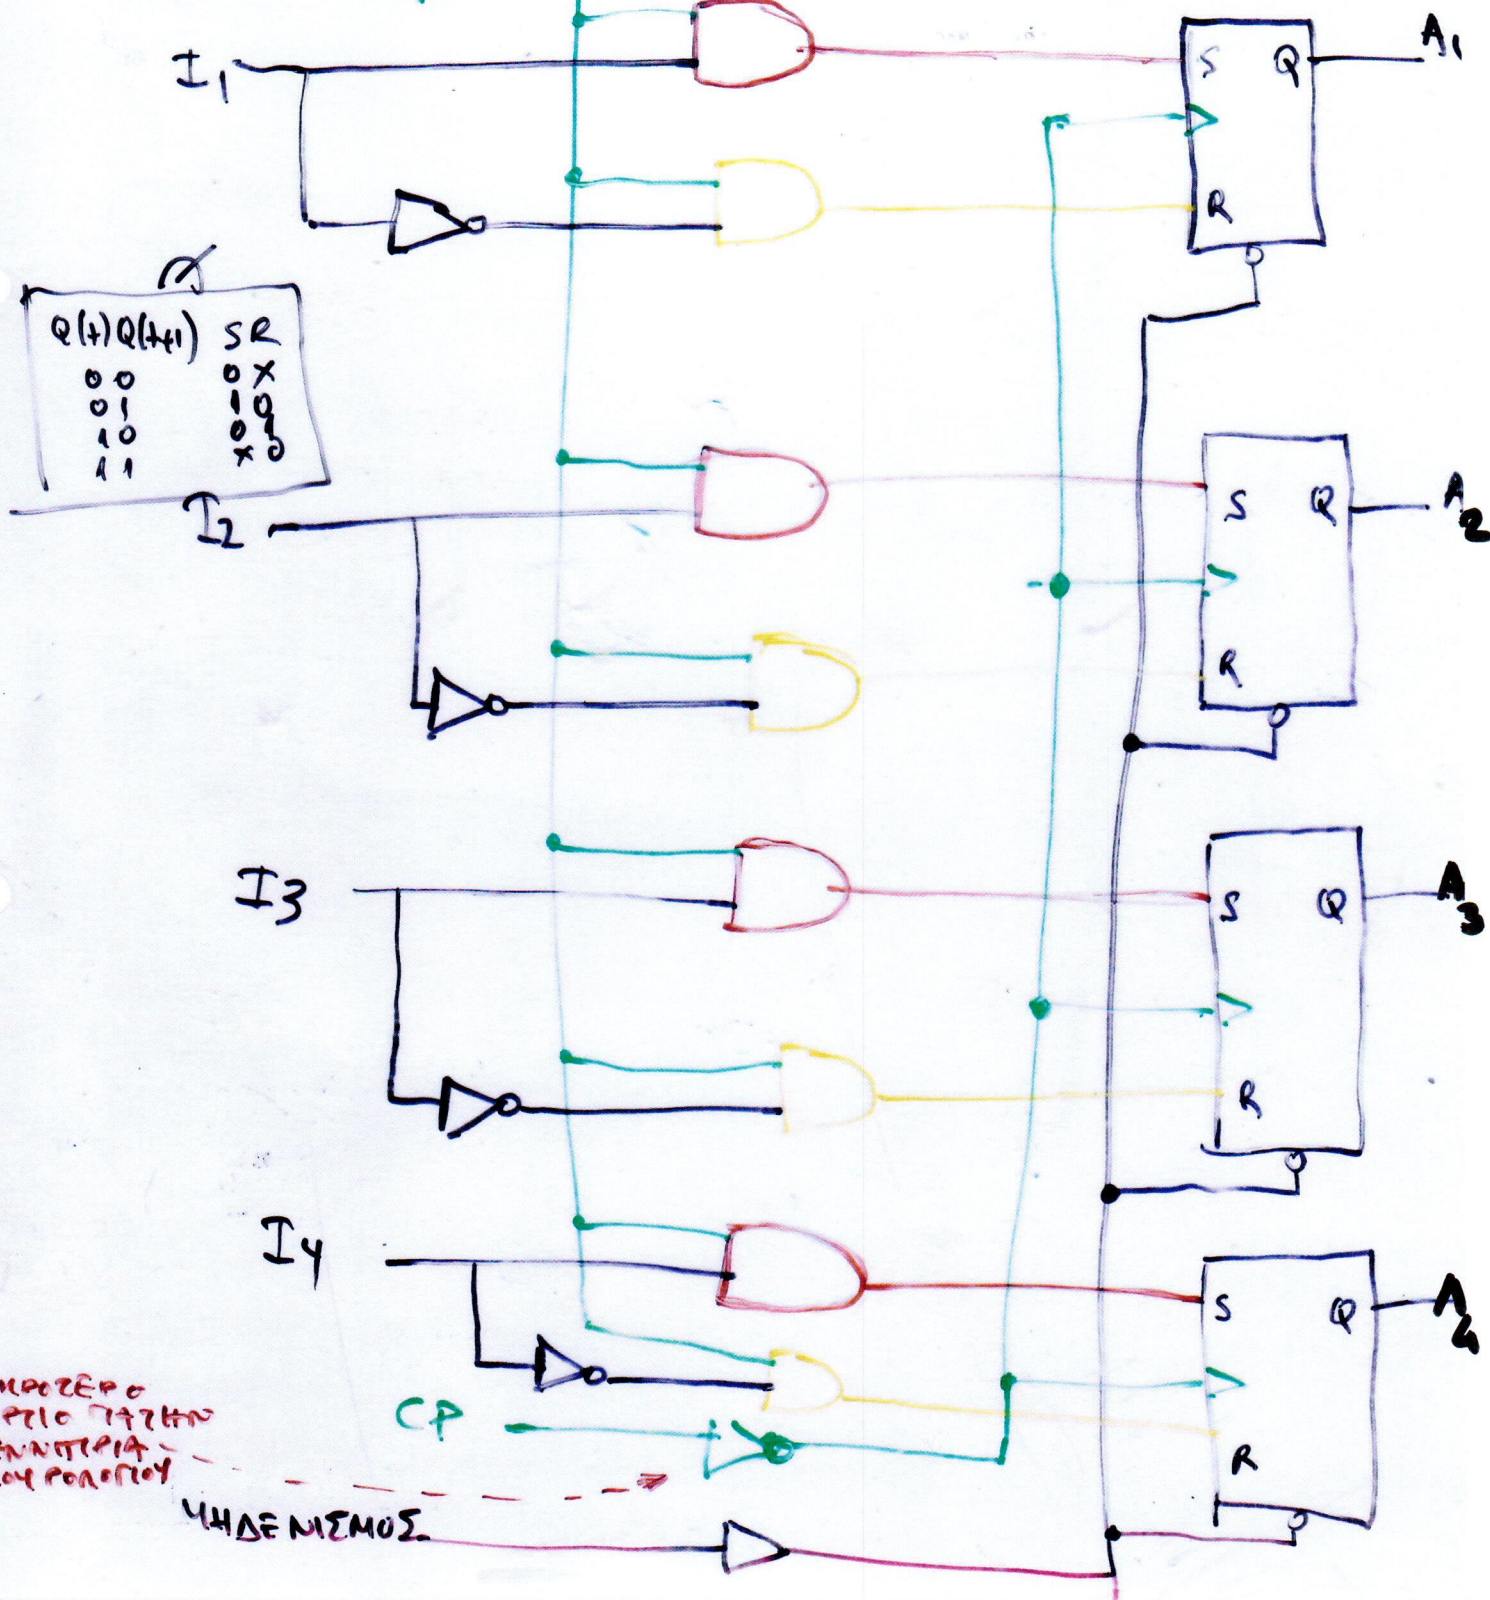 I1
S Q
A1
R
Q(t) Q(t+1) S R
0 0 0 X
0 1 1 0
1 0 0 1
1 1 X 0
I2
S Q
A2
R
I3
S Q
A3
R
I4
S Q
A4
R
CP
ΜΗΔΕΝΙΣΜΟΣ
ΟΥ ΡΟΛΟΓΙΟΥ